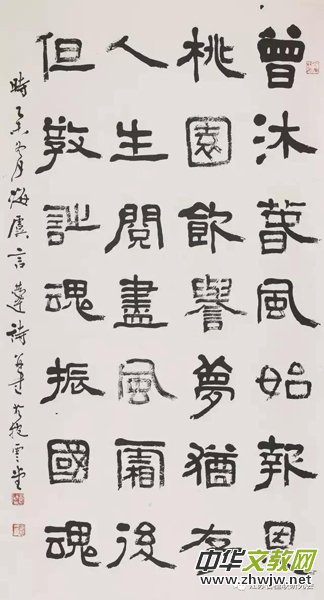 曾沐春風始報恩
桃園飲譽夢猶存
人生閱盡風霜後
但教詩魂振國魂
時乙未月海虞言恭達詩并書於抱雲堂
中华文教网
www.zhwjw.net